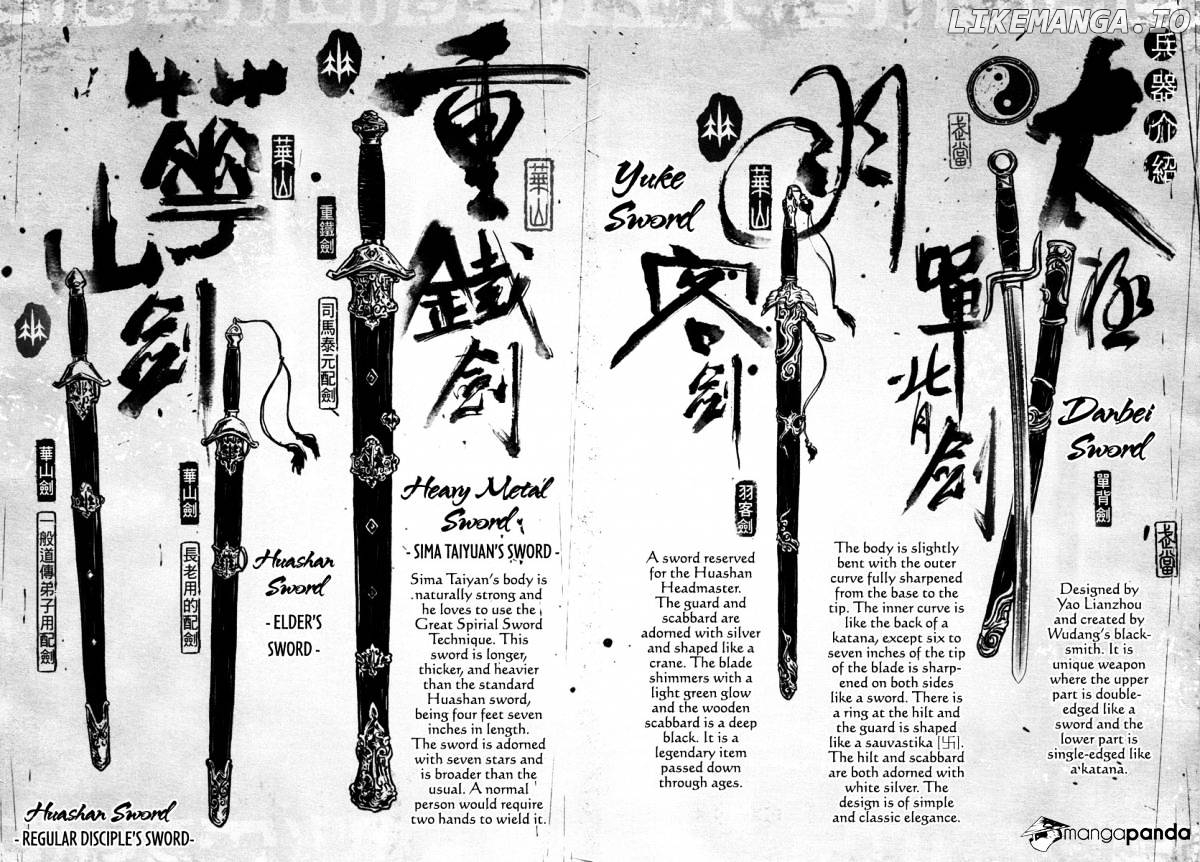 LIKEMANGA.IO
兵器介紹
太極
單背劍
武當
Danbei
Sword
單背劍
武當
Designed by
Yao Lianzhou
and created by
Wudang's black-
smith. It is
unique weapon
where the upper
part is double-
edged like a
sword and the
lower part is
single-edged like
a katana.
The body is slightly
bent with the outer
curve fully sharpened
from the base to the
tip. The inner curve is
like the back of a
katana, except six to
seven inches of the tip
of the blade is sharp-
ened on both sides
like a sword. There is
a ring at the hilt and
the guard is shaped
like a sauvastika [卐].
The hilt and scabbard
are both adorned with
white silver. The
design is of simple
and classic elegance.
羽客劍
華山
Yuke
Sword
羽客劍
A sword reserved
for the Huashan
Headmaster.
The guard and
scabbard are
adorned with silver
and shaped like a
crane. The blade
shimmers with a
light green glow
and the wooden
scabbard is a deep
black. It is a
legendary item
passed down
through ages.
重鐵劍
華山
重鐵劍
司馬泰元配劍
Heavy Metal
Sword
- SIMA TAIYUAN'S SWORD -
Sima Taiyan's body is
naturally strong and
he loves to use the
Great Spirial Sword
Technique. This
sword is longer,
thicker, and heavier
than the standard
Huashan sword,
being four feet seven
inches in length.
The sword is adorned
with seven stars and
is broader than the
usual. A normal
person would require
two hands to wield it.
華山劍
華山
華山劍
長老用的配劍
Huashan
Sword
- ELDER'S
SWORD -
華山劍
一般道傳弟子用配劍
Huashan Sword
- REGULAR DISCIPLE'S SWORD-
mangapanda